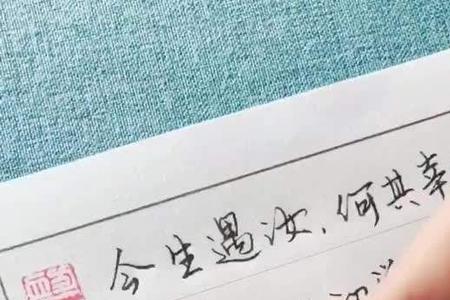 今生遇汝，何其幸